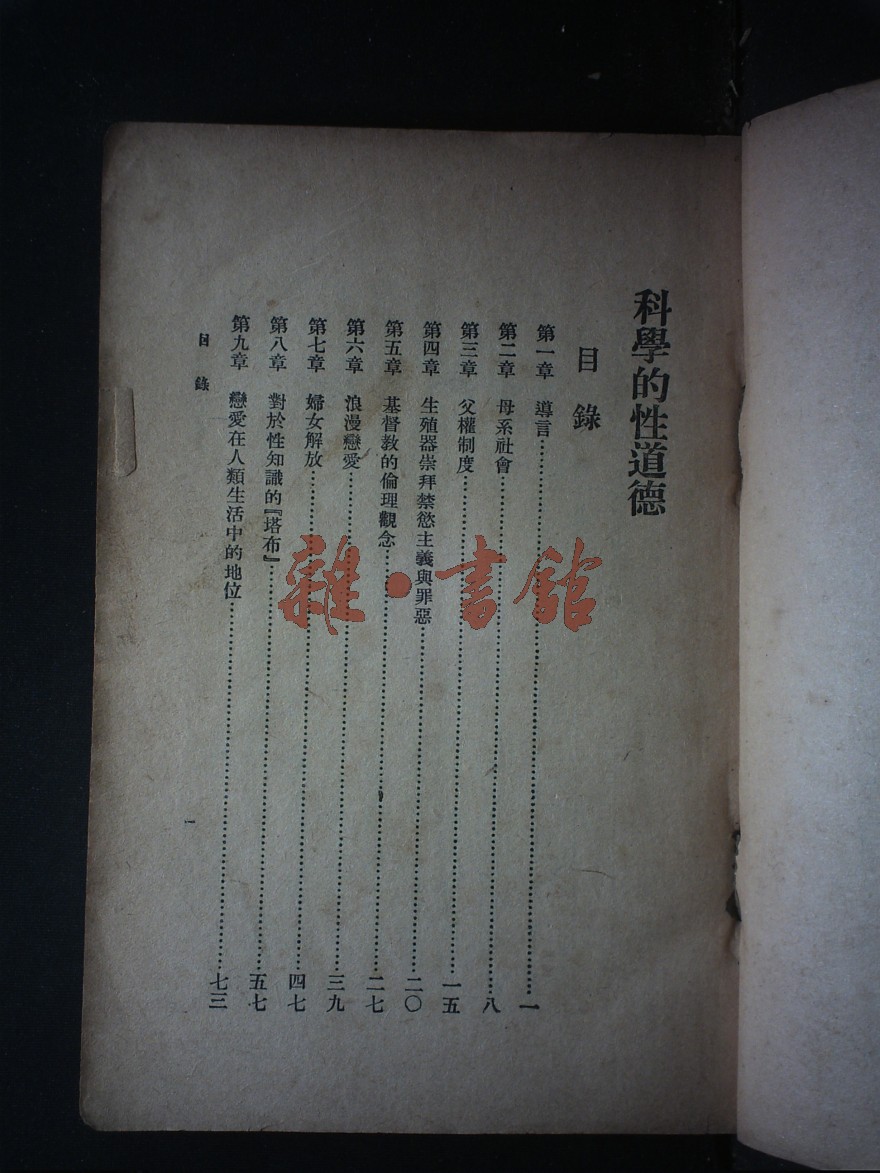 科學的性道德
目錄
第一章 導言……一
第二章 母系社會……八
第三章 父權制度……一五
第四章 生殖器崇拜禁慾主義與罪惡……二〇
第五章 基督教的倫理觀念……二七
第六章 浪漫戀愛……三九
第七章 婦女解放……四七
第八章 對於性知識的『塔布』……五七
第九章 戀愛在人類生活中的地位……七三
目錄
一
雜·書館